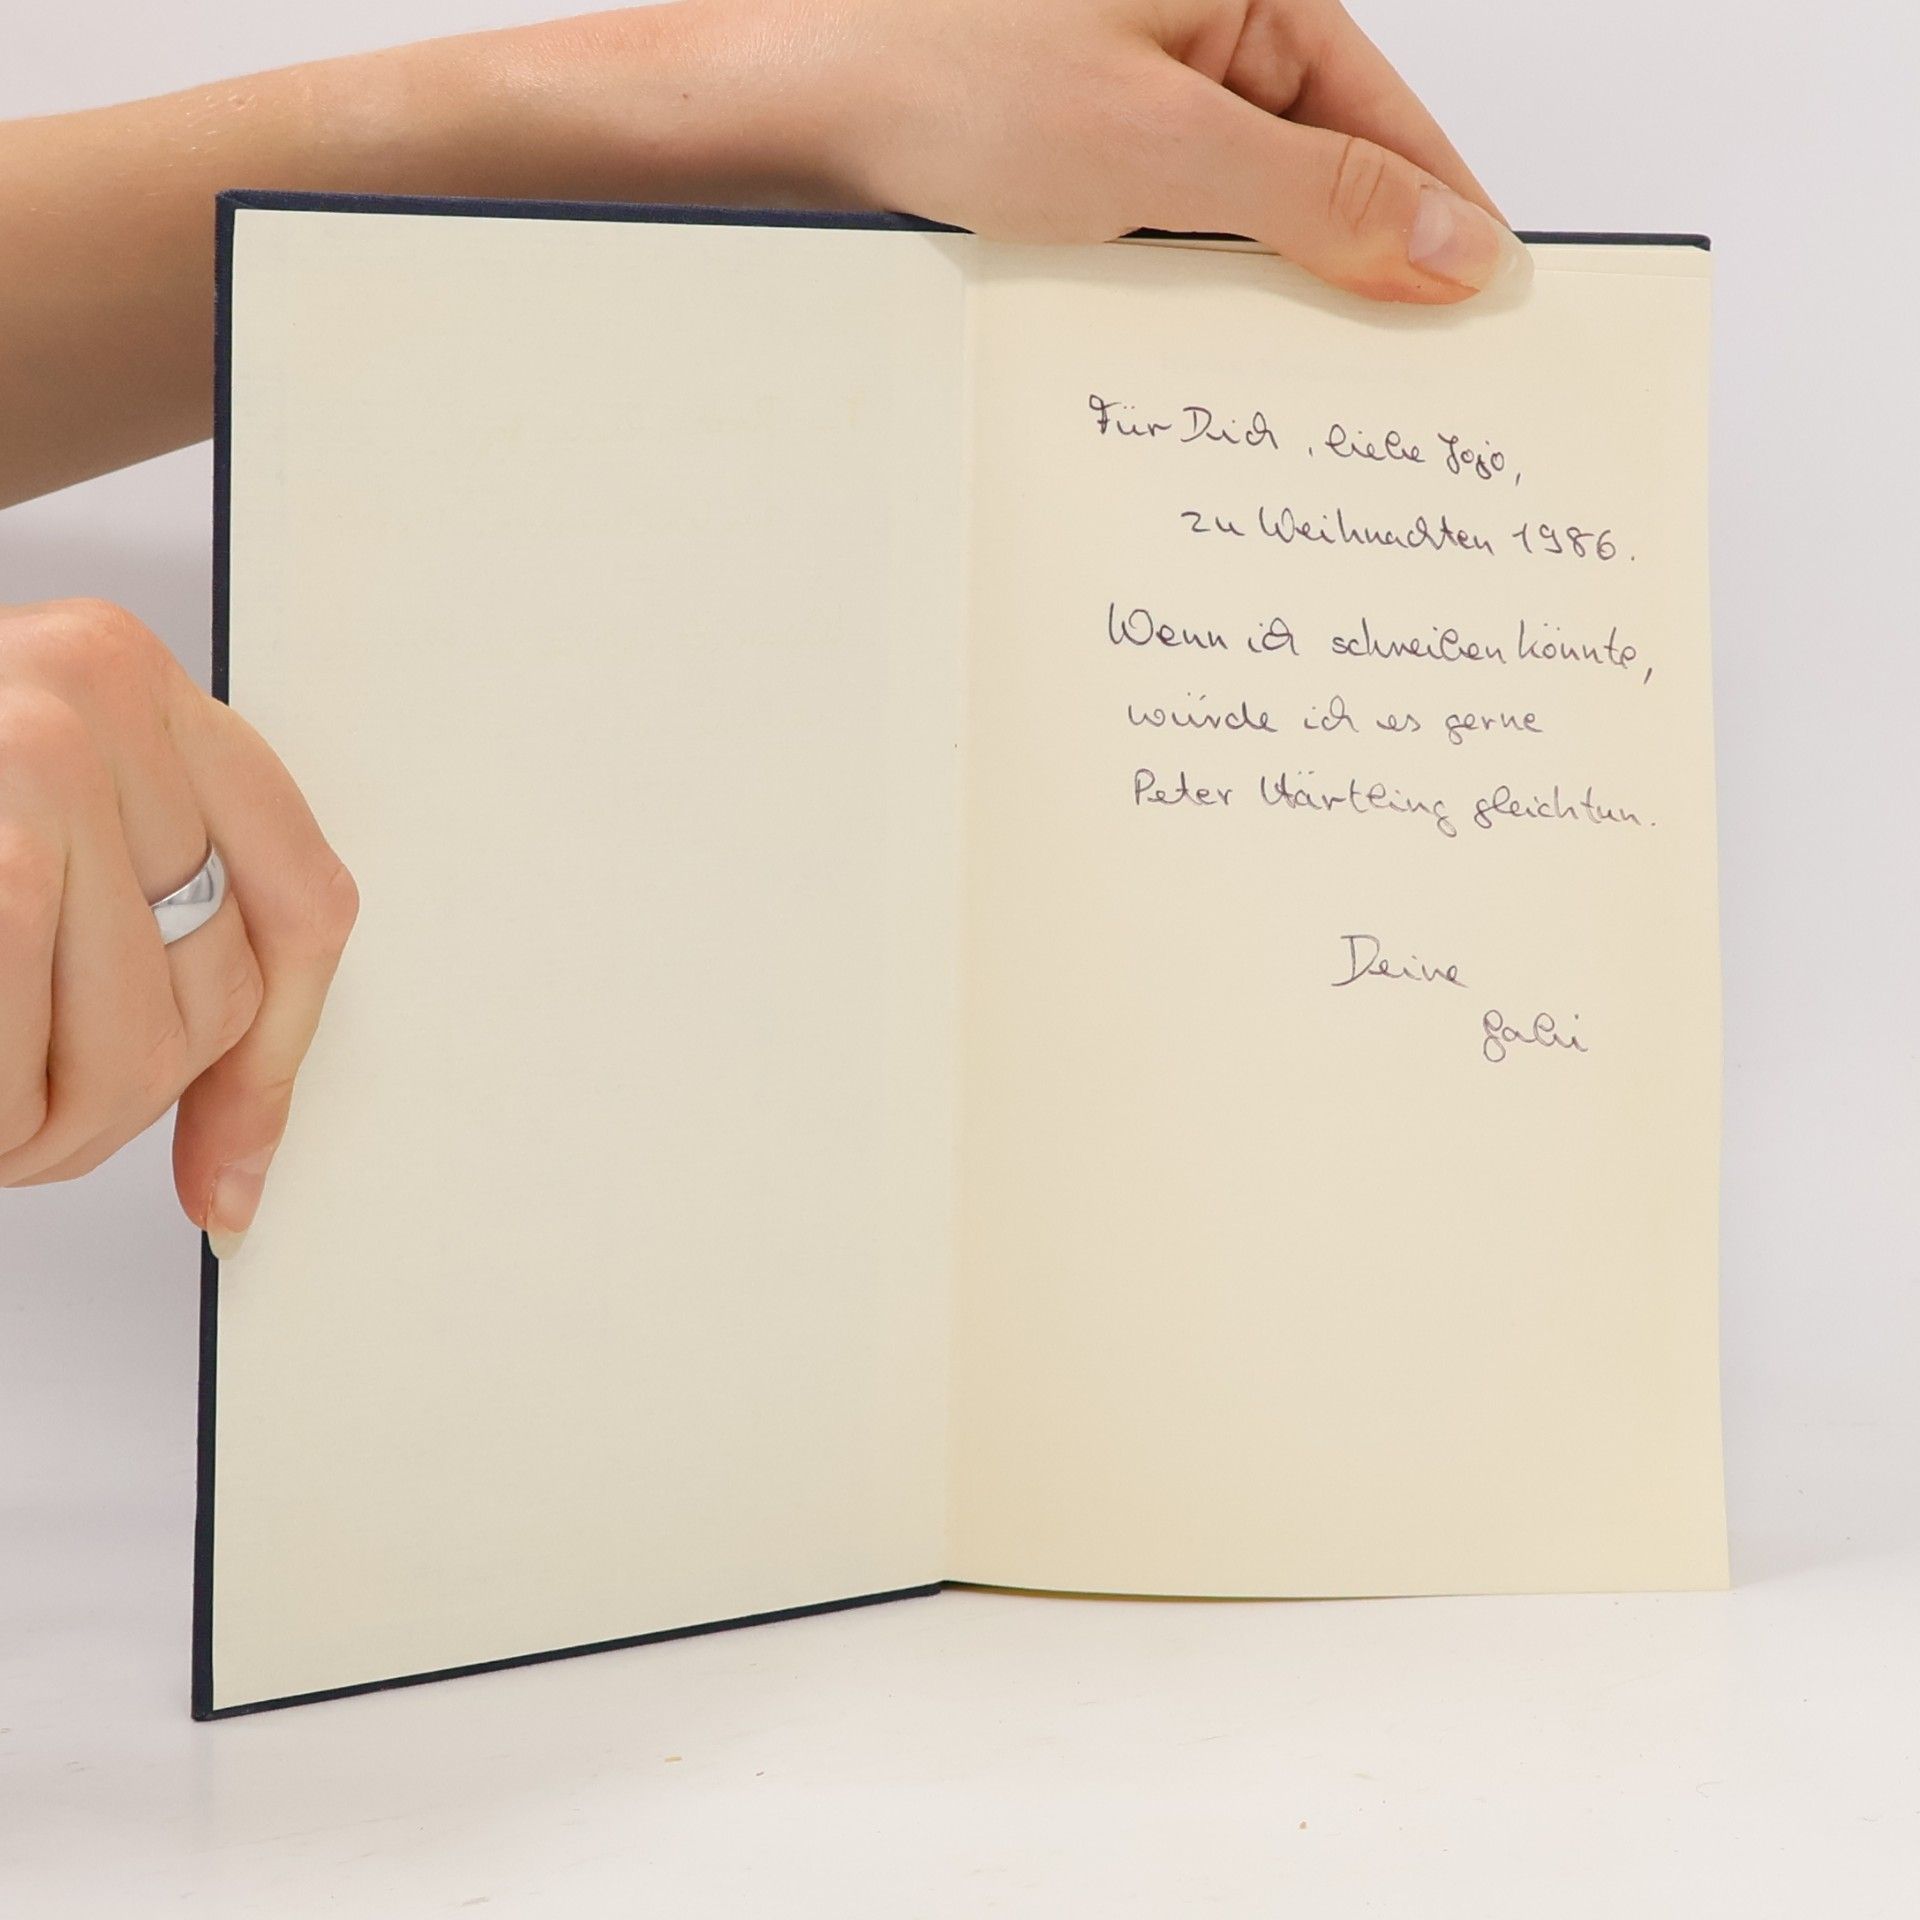 Für Dich, liebe Jojo,
zu Weihnachten 1986.
Wenn ich schreiben könnte,
würde ich es gerne
Peter Härtling gleichtun.
Deine
Gabi